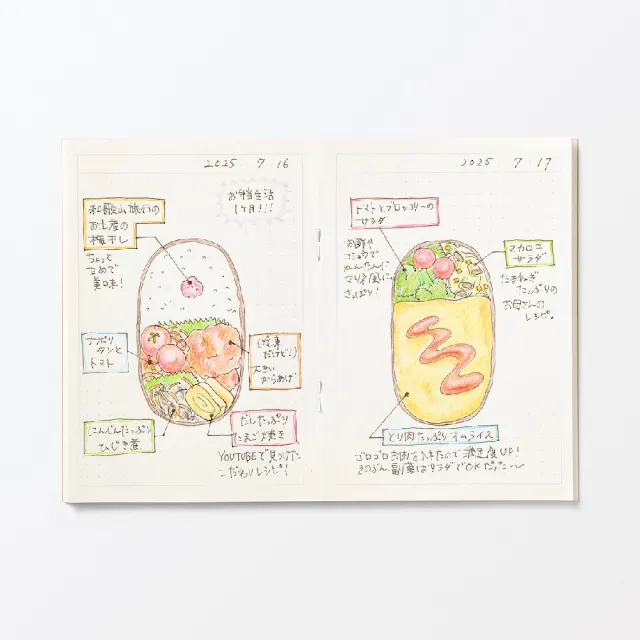 2025 7 16
お弁当生活
1ヶ月!!!
和歌山旅行の
お土産の
梅干し
ちょっと
甘めで
美味!
ナポリ
タンと
トマト
(冷凍
だけど!)
大きい
からあげ
にんじんたっぷり
ひじき煮
だしたっぷり
たまご焼き
YOUTUBEで見つけた
こだわりレシピ!
2025 7 17
トマトとブロッコリーの
サラダ
お酢や
コショウで
かんたんに
マリネ風に。
さっぱり!
マカロニ
サラダ
たまねぎ
たっぷりの
お母さんの
レシピ。
とり肉たっぷりオムライス
ゴロゴロお肉を入れたので満足度UP!
そのぶん、副菜はサラダでOKだった〜